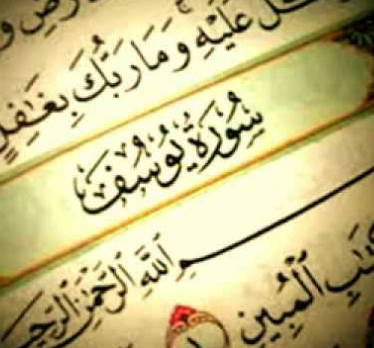 رْضِ وَ
كَّلْ عَلَيْهِ وَمَا رَبُّكَ بِغَٰفِلٍ
سُورَةُ يُوسُفَ
بِسْمِ ٱللَّهِ ٱلرَّحْمَٰنِ ٱلرَّحِي
كِتَٰبِ ٱلْمُبِينِ